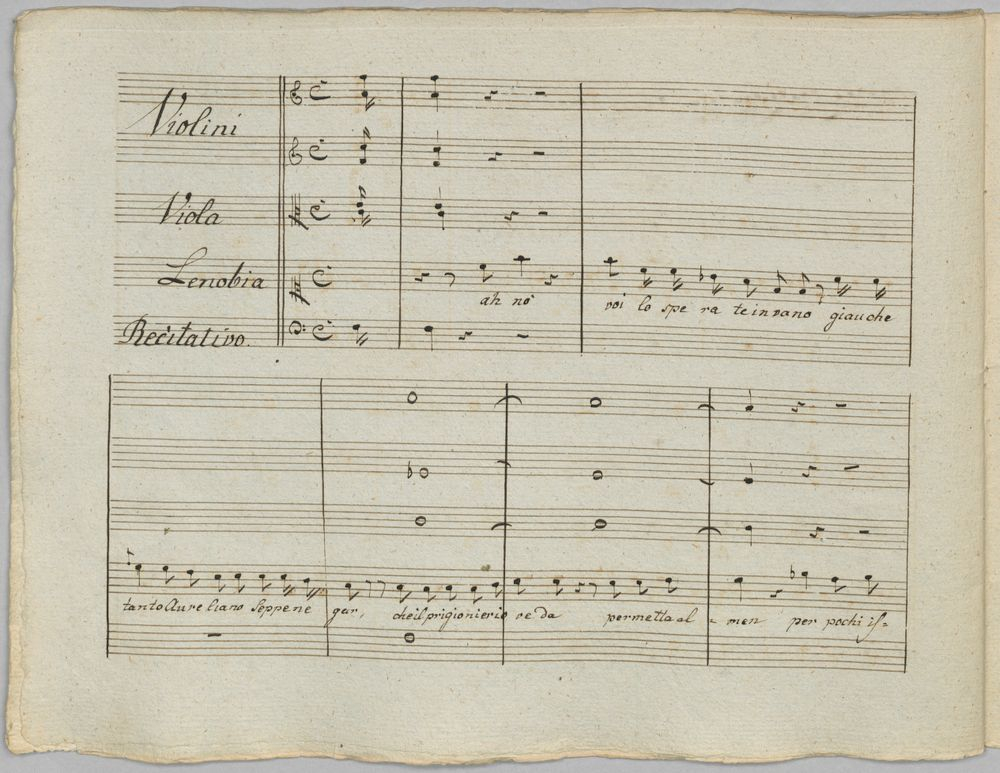 Violini
Viola
Zenobia
ah no voi lo spe ra te in vano giacche
Recitativo.
tanto Aureliano seppe ne gar, che il prigionierio ve da permetta al = men per pochi is=